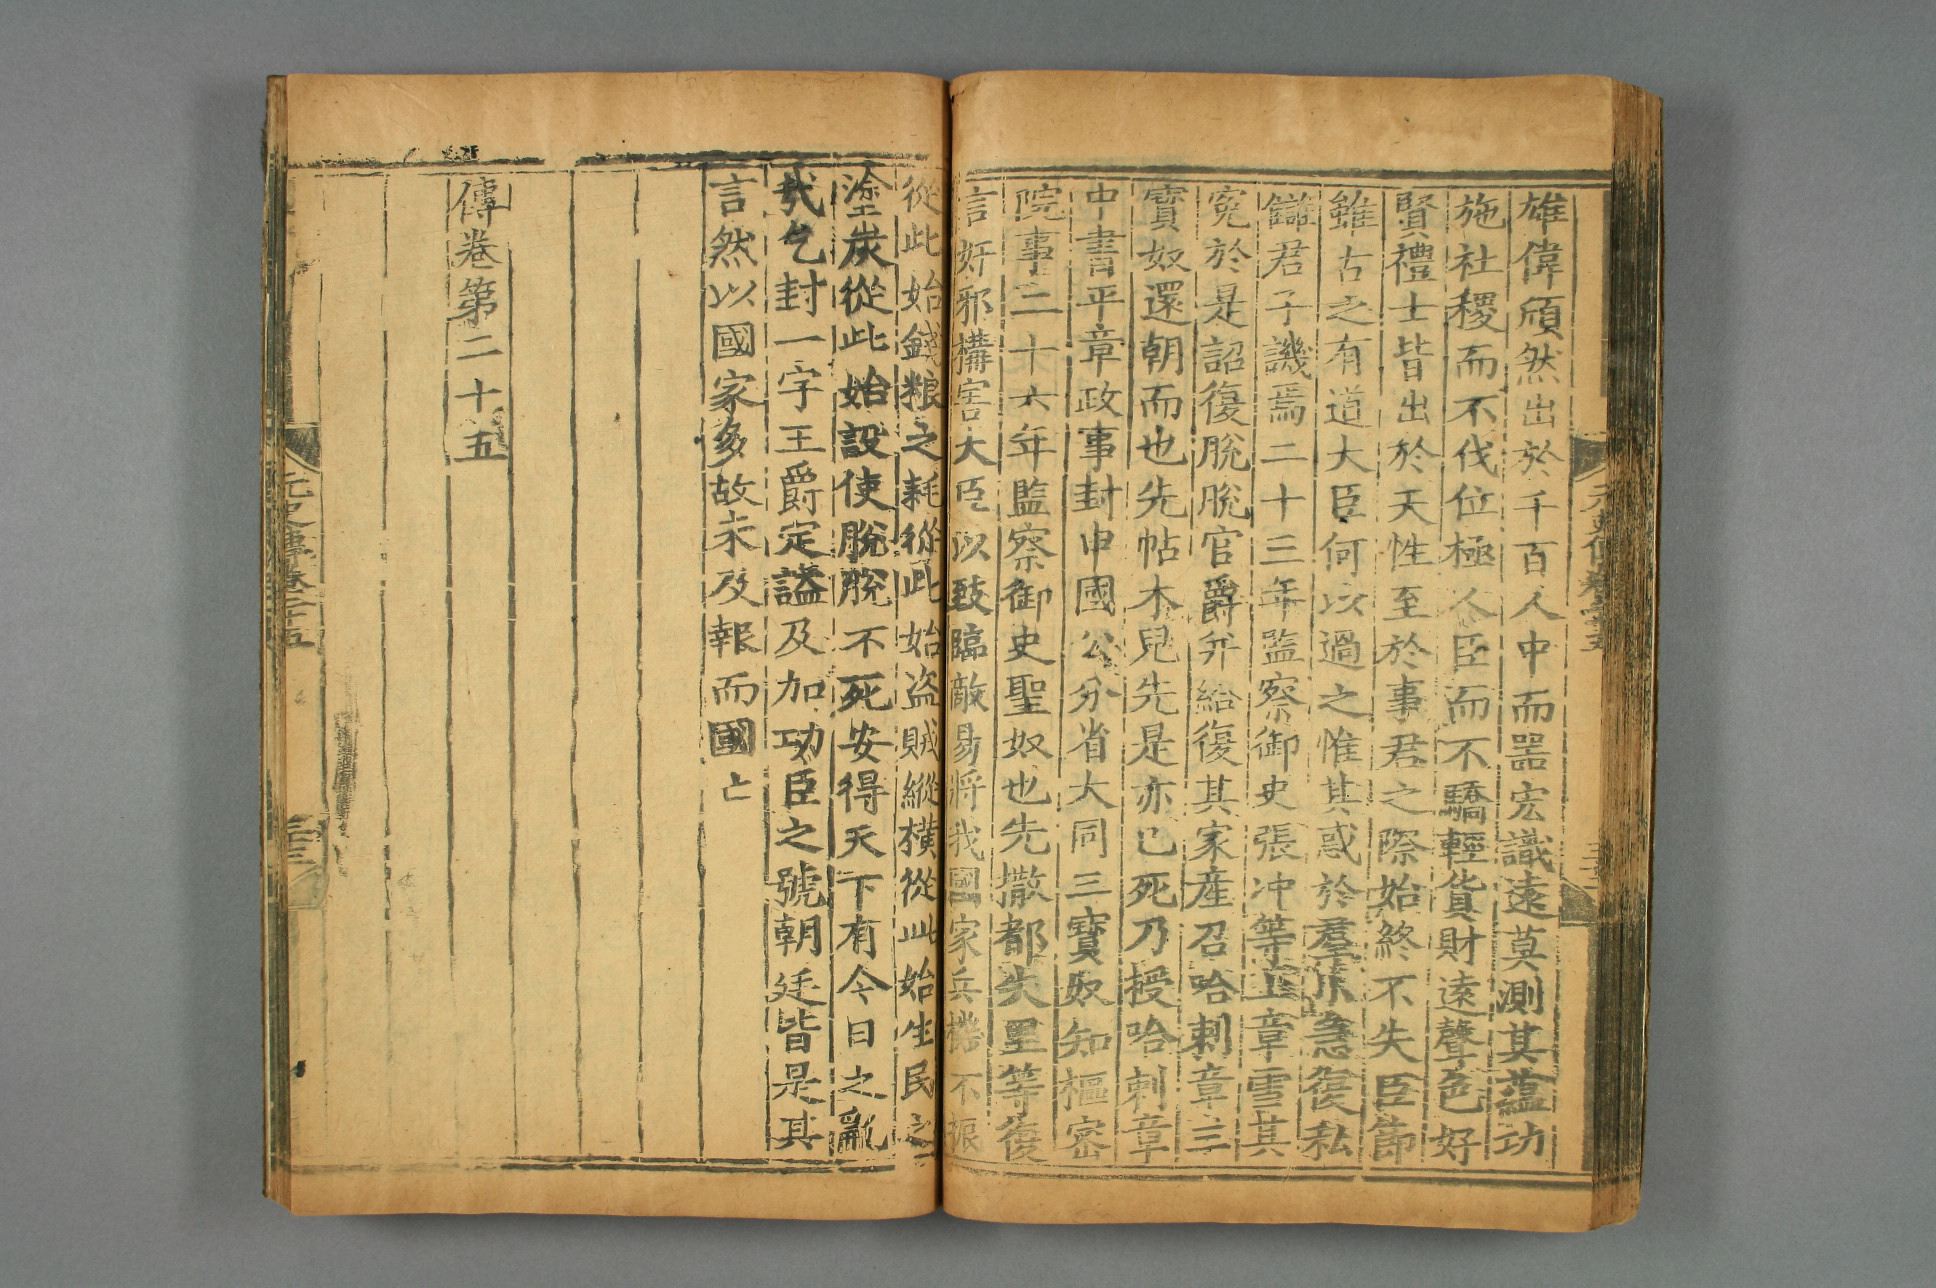 雄偉頎然出於千百人中而器宏識遠莫測其蘊功
施社稷而不伐位極人臣而不驕輕貨財遠聲色好
賢禮士皆出於天性至於事君之際始終不失臣節
雖古之有道大臣何以過之惟其惑於羣小急復私
讎君子譏焉二十三年監察御史張冲等上章雪其
冤於是詔復脫脫官爵并給復其家產召哈剌章三
寶奴還朝而也先帖木兒先是亦已死乃授哈剌章
中書平章政事封申國公分省大同三寶奴知樞密
院事二十六年監察御史聖奴也先撒都失里等復
言奸邪構害大臣以致臨敵易將我國家兵機不振
從此始錢粮之耗從此始盗賊縱橫從此始生民之
塗炭從此始設使脫脫不死安得天下有今日之亂
哉乞封一字王爵定謚及加功臣之號朝廷皆是其
言然以國家多故未及報而國亡
傳卷第二十五
元史傳卷二十五